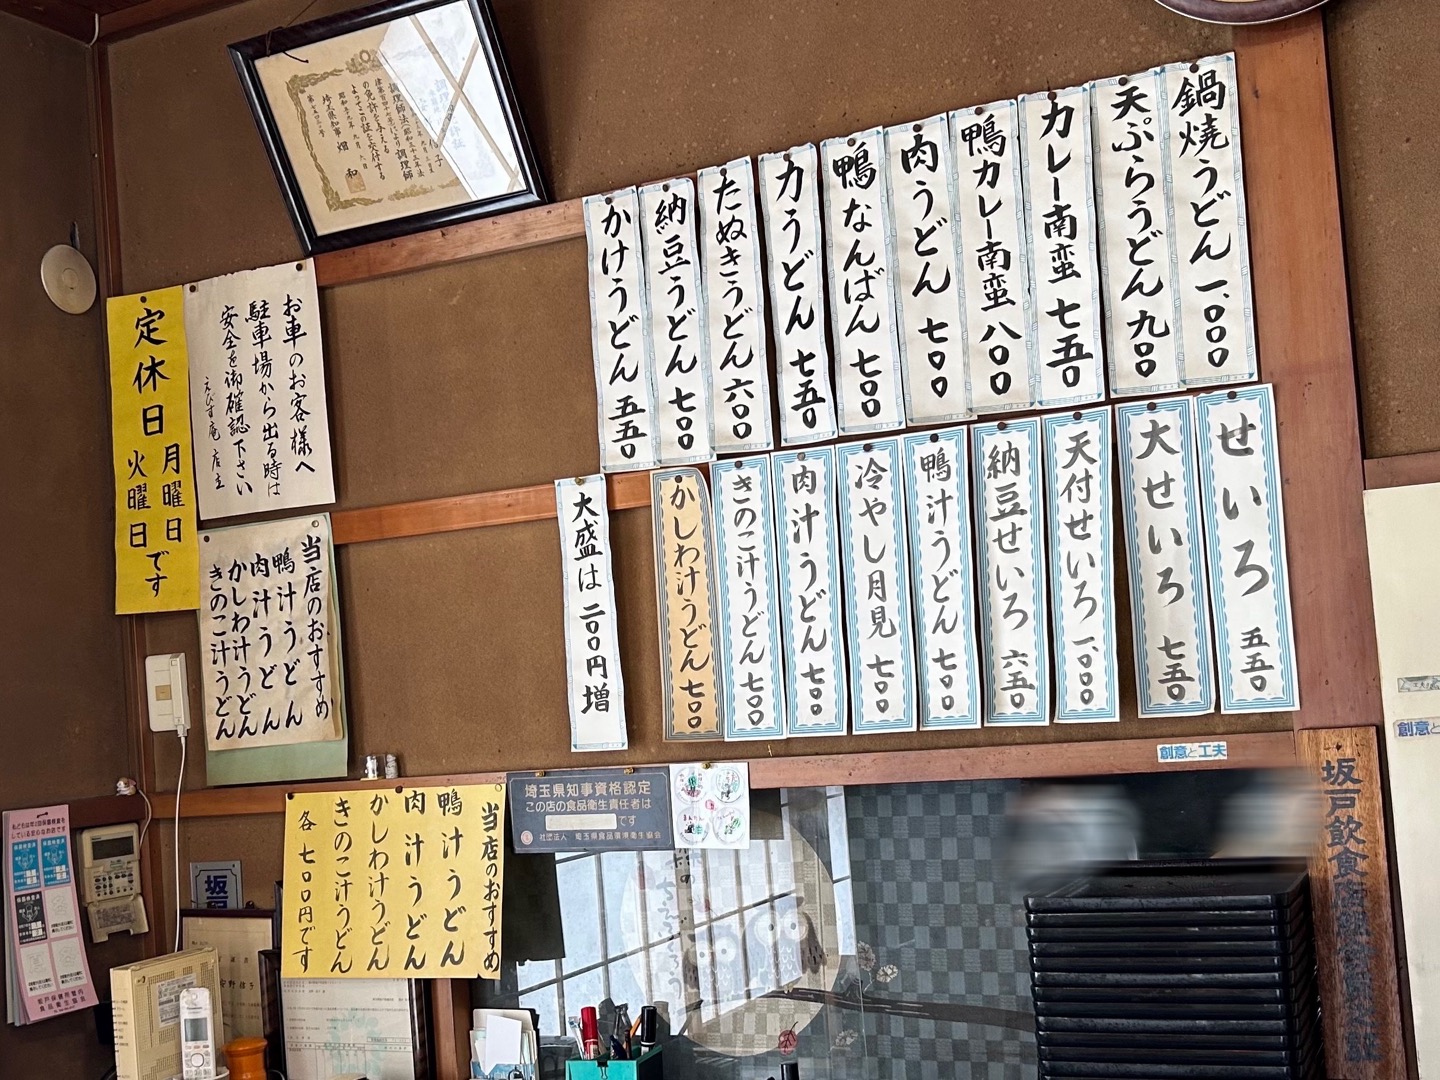 鍋焼うどん 一、〇〇〇
天ぷらうどん 九〇〇
カレー南蛮 七五〇
鴨カレー南蛮 八〇〇
肉うどん 七〇〇
鴨なんばん 七〇〇
力うどん 七五〇
たぬきうどん 六〇〇
納豆うどん 七〇〇
かけうどん 五五〇
せいろ 五五〇
大せいろ 七五〇
天付せいろ 一、〇〇〇
納豆せいろ 六五〇
鴨汁うどん 七〇〇
冷やし月見 七〇〇
肉汁うどん 七〇〇
きのこ汁うどん 七〇〇
かしわ汁うどん 七〇〇
大盛は 二〇〇円増
お車のお客様へ
駐車場から出る時は
安全を御確認下さい
えびす庵 店主
定休日 月曜日
火曜日 です
当店のおすすめ
鴨汁うどん
肉汁うどん
かしわ汁うどん
きのこ汁うどん
当店のおすすめ
鴨汁うどん
肉汁うどん
かしわ汁うどん
きのこ汁うどん
各 七〇〇円です
埼玉県知事資格認定
この店の食品衛生責任者は
です
社団法人 埼玉県食品環境衛生協会
創意と工夫
創意と
坂戸飲食
坂戸
調理師法
埼玉県知事 畑 和